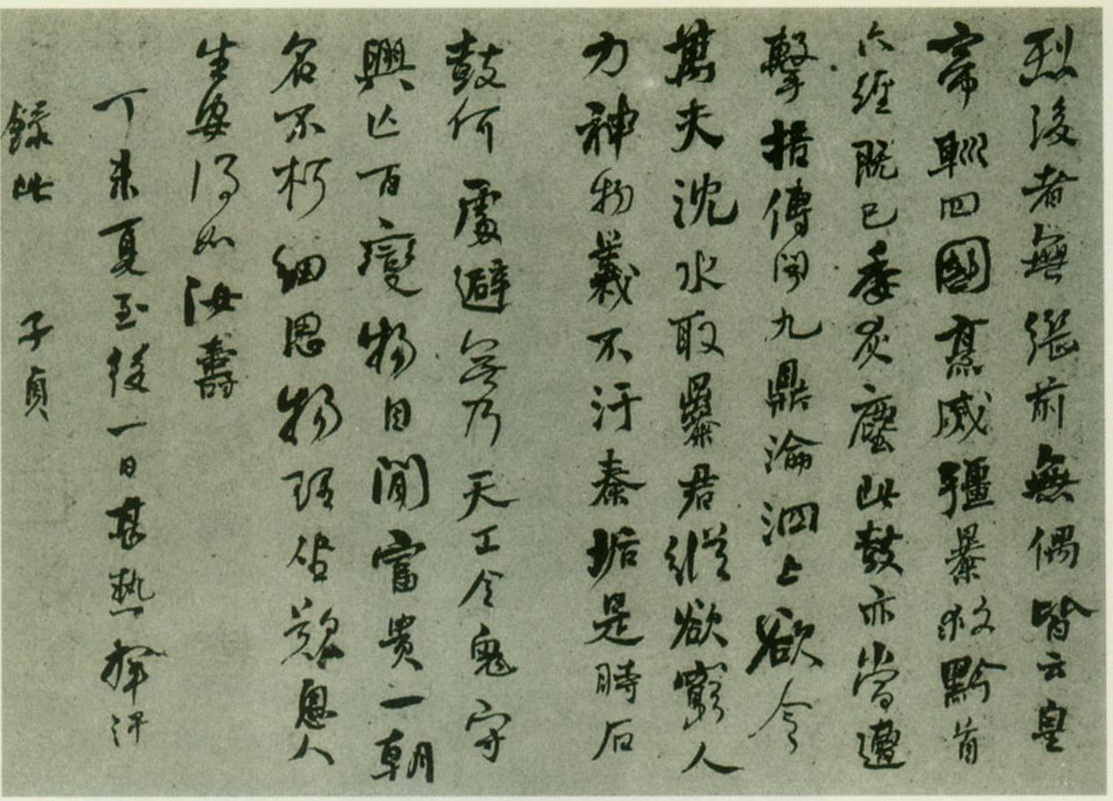 烈後者無繼前無偶皆云皇
帝巡四國烹滅彊暴救黔首
六經既已委灰塵此鼓亦當遭
擊掊傳聞九鼎淪泗上欲令
萬夫沈水取暴君縱欲窮人
力神物義不汙秦垢是時石
鼓何處避無乃天工令鬼守
興亡百變物自閒富貴一朝
名不朽細思物理坐歎息人
生安得如汝壽
丁未夏至後一日甚熱揮汗
錄此 子貞